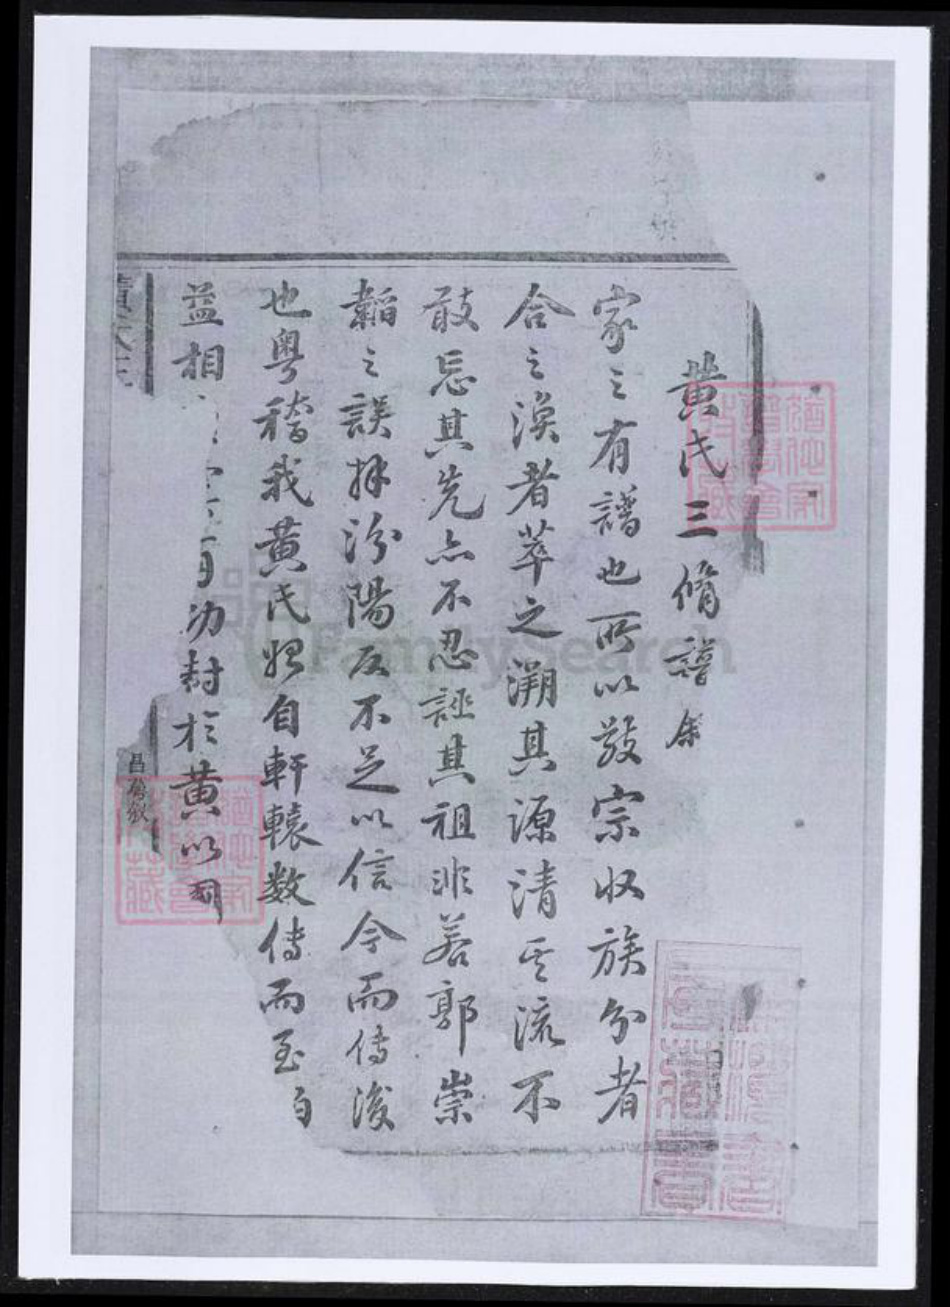 黄氏三脩譜
家之有譜也所以敬宗收族分者
合之渙者萃之溯其源清其流不
敢忘其先亦不忍誣其祖非若郭崇
韜之誤拜汾陽反不足以信今而傳後
也粤稽我黄氏始自軒轅数傳而至伯
益相
功封於黄以國
昌
叙
FamilySearch